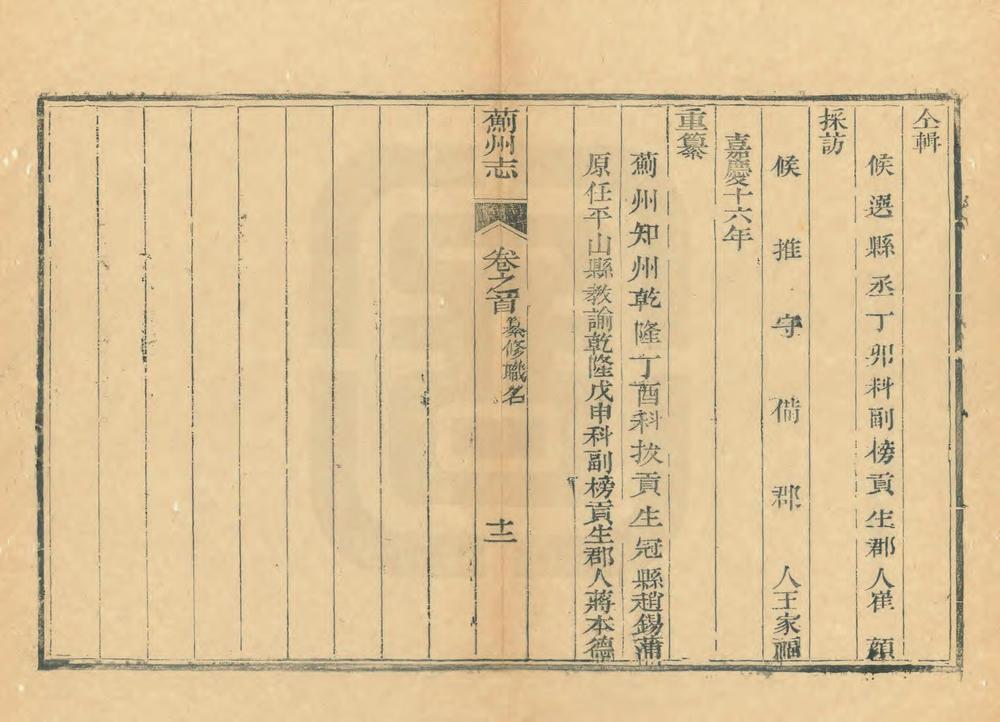 仝輯
候選縣丞丁卯科副榜貢生郡人崔顔
採訪
候推守偹郡人王家禑
嘉慶十六年
重纂
薊州知州乾隆丁酉科拔貢生冠縣趙錫蒲
原任平山縣教諭乾隆戊申科副榜貢生郡人蔣本德
薊州志
卷之首
纂修職名
十二